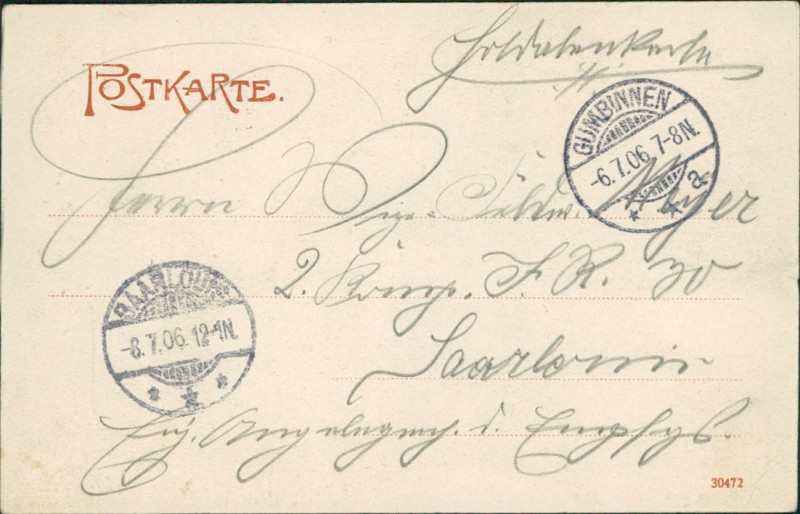 Soldatenkarte
POSTKARTE.
GUMBINNEN
-6.7.06. 7-8N.
a
Herrn
Vize-Feldw. Meyer
2. Komp. I. R. 70
SAARLOUIS
-8.7.06. 12-1N.
Saarlouis
Eig. Angelegenh. d. Empfgs.
30472